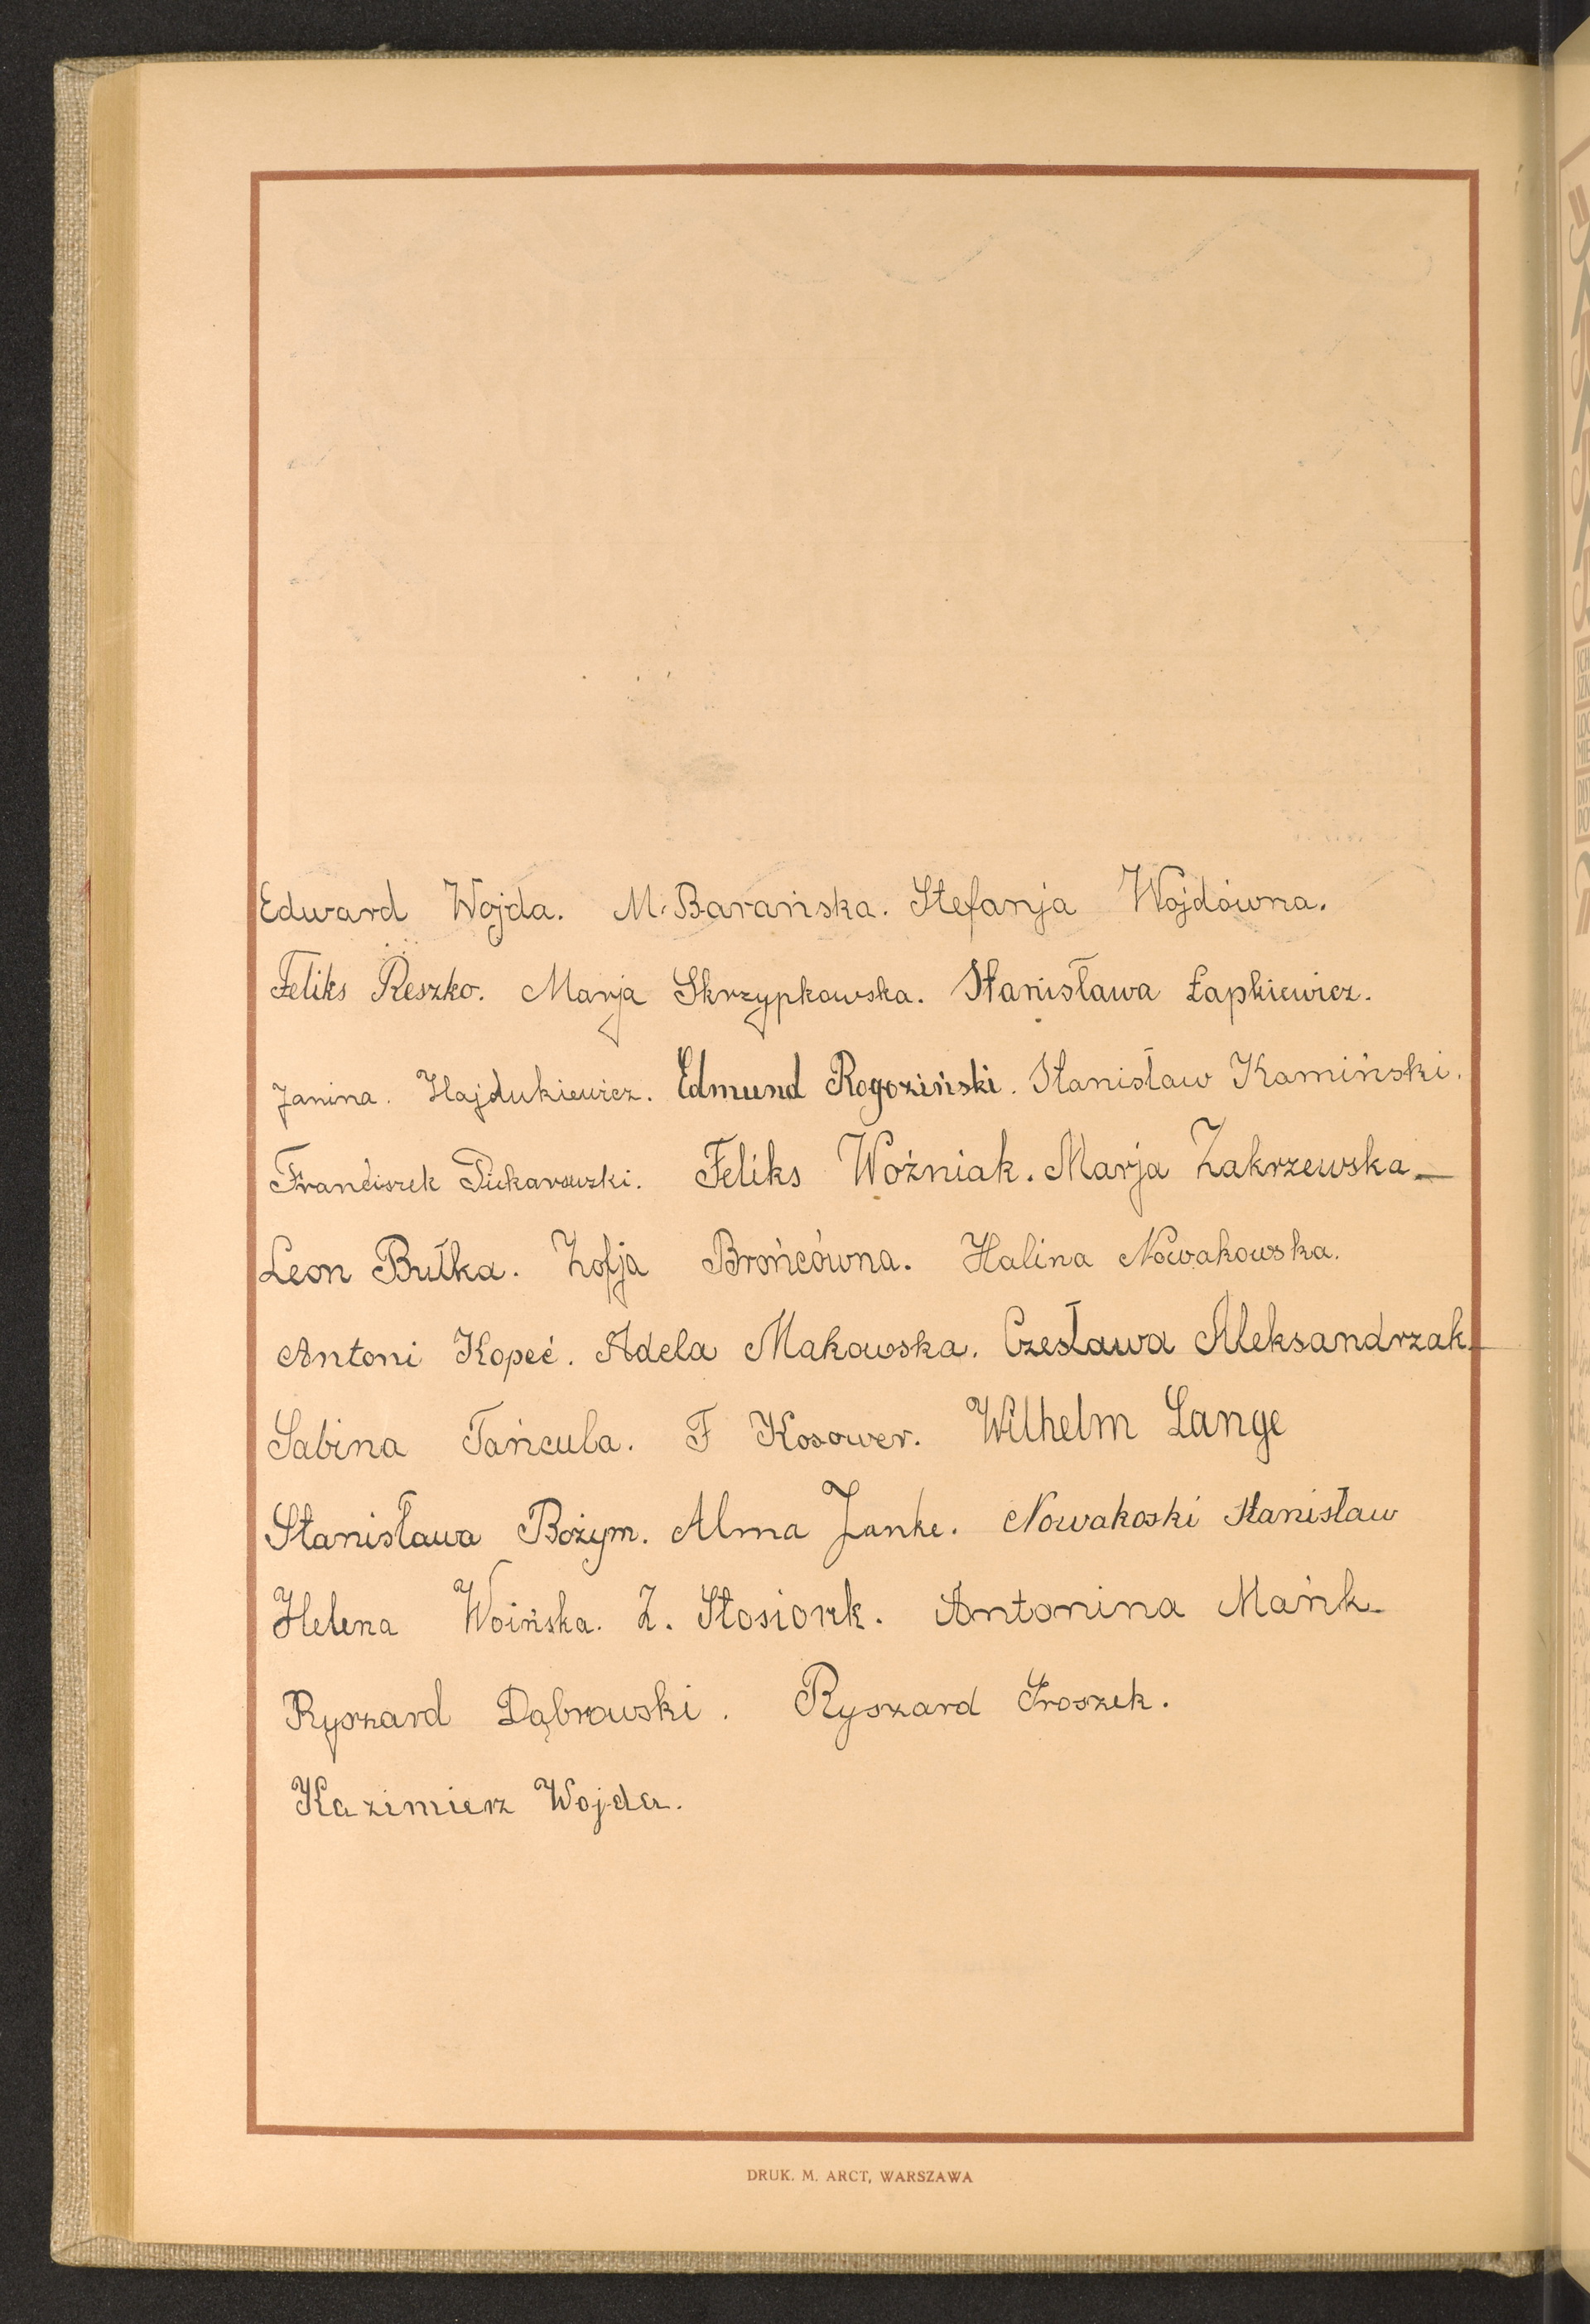 Edward Wojda. M. Barańska. Stefanja Wojdówna.
Feliks Reszko. Marja Skrzypkowska. Stanisława Łapkiewicz.
Janina. Hajdukiewicz. Edmund Rogoziński. Stanisław Kamiński.
Franciszek Piekarowski. Feliks Woźniak. Marja Zakrzewska
Leon Bułka. Zofja Brońcówna. Halina Nowakowska.
Antoni Kopeć. Adela Makowska. Czesława Aleksandrzak
Sabina Tańcula. F Kosower. Wilhelm Lange
Stanisława Bożym. Alma Janke. Nowakoski Stanisław
Helena Woińska. Z. Stosiorek. Antonina Mańk
Ryszard Dąbrowski. Ryszard Groszek.
Kazimierz Wojda.
DRUK. M. ARCT, WARSZAWA